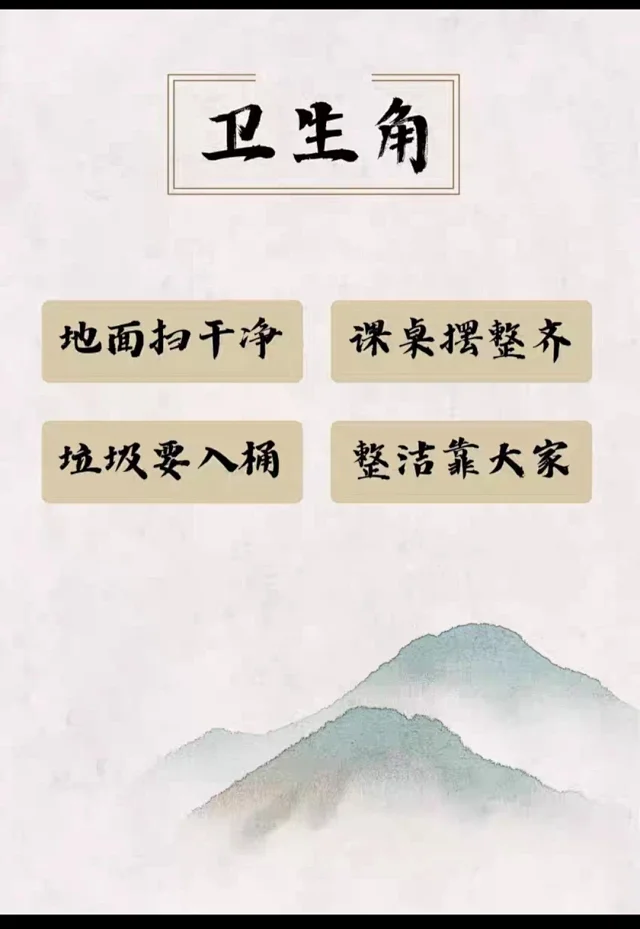 卫生角
地面扫干净
课桌摆整齐
垃圾要入桶
整洁靠大家